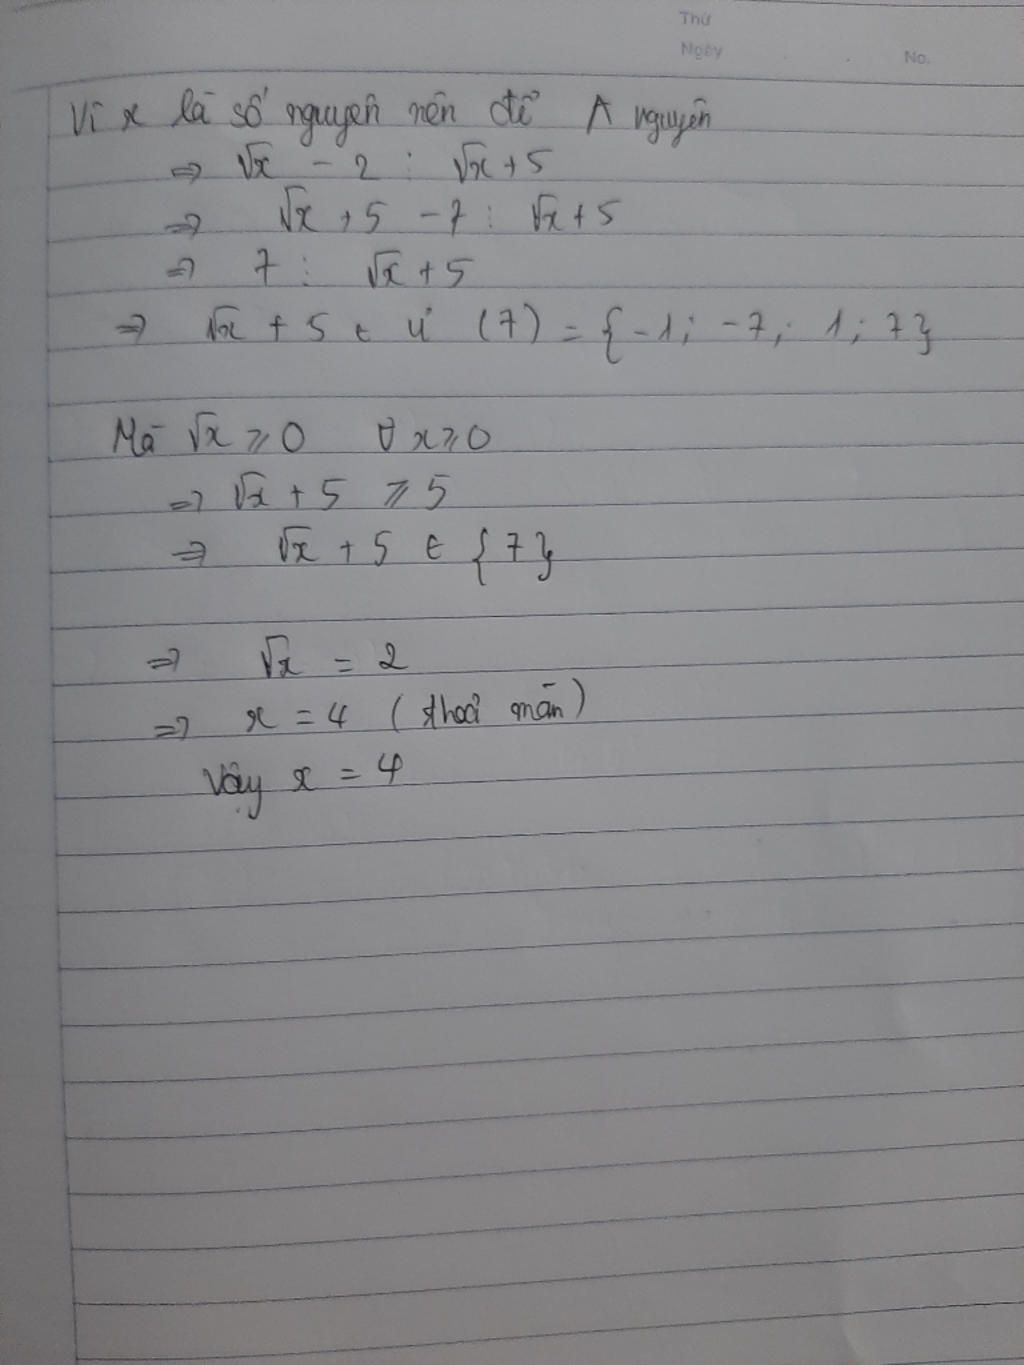 Thứ
Ngày
No.
Vì x là số nguyên nên để A nguyên
⇒ √x - 2 ⋮ √x + 5
⇒ √x + 5 - 7 ⋮ √x + 5
⇒ 7 ⋮ √x + 5
⇒ √x + 5 ∈ Ư (7) = {-1; -7; 1; 7}
Mà √x ≥ 0 ∀ x ≥ 0
⇒ √x + 5 ≥ 5
⇒ √x + 5 ∈ {7}
⇒ √x = 2
⇒ x = 4 (thoả mãn)
Vậy x = 4